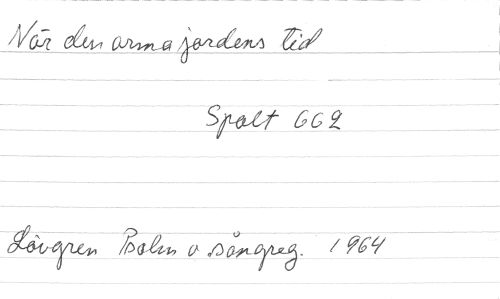 När den arma jordens tid
Spalt 662
Lövgren Psalm o sångreg. 1964